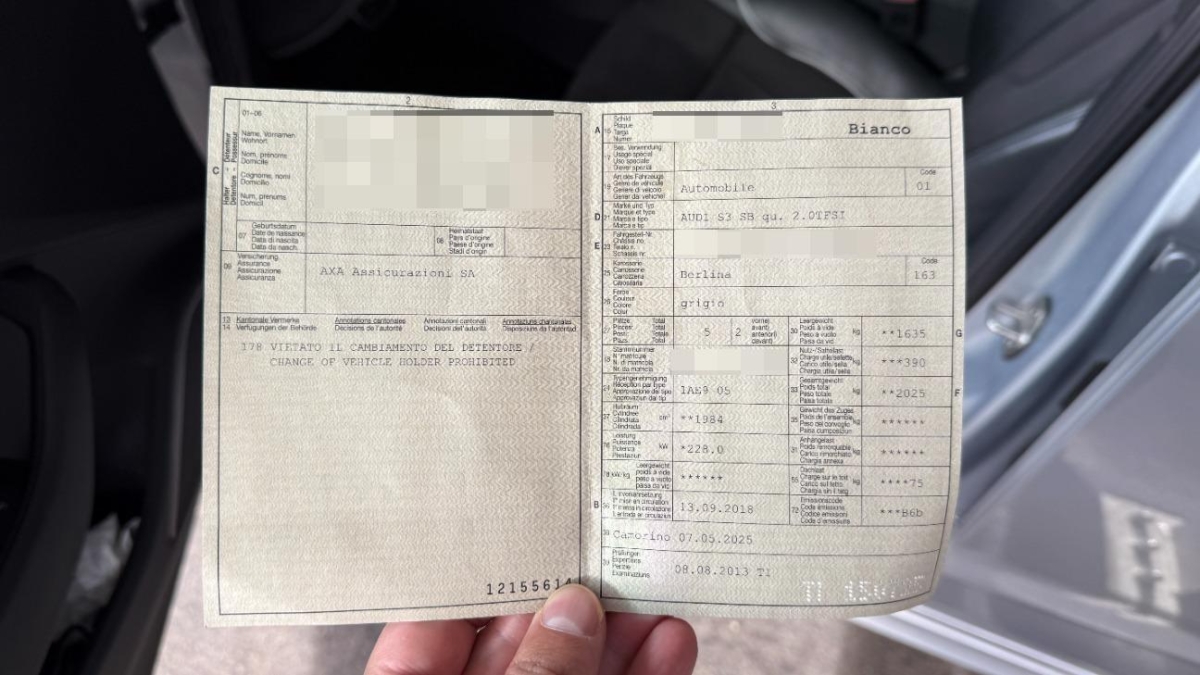 2
01-06
Name, Vornamen
Wohnort
Nom, prénoms
Domicile
Cognome, nomi
Domicilio
Num, prenums
Domicil
C
Halter
Détenteur
Detentore
Possessur
07
Geburtsdatum
Date de naissance
Data di nascita
Data da nasch.
08
Heimatstaat
Pays d'origine
Paese d'origine
Stadi d'origin
09
Versicherung
Assurance
Assicurazione
Assicuranza
AXA Assicurazioni SA
13
14
Kantonale Vermerke
Verfügungen der Behörde
Annotations cantonales
Décisions de l'autorité
Annotazioni cantonali
Decisioni dell'autorità
Annotaziuns chantunalas
Disposiziuns da l'autoritad
178 VIETATO IL CAMBIAMENTO DEL DETENTORE /
CHANGE OF VEHICLE HOLDER PROHIBITED
12155614
3
A
Schild
Plaque
Targa
Numer
Bianco
Bes. Verwendung
Usage spécial
Uso speciale
Diever spezial
19
Art des Fahrzeugs
Genre de véhicule
Genere di veicolo
Gener da vehichel
Automobile
Code
01
D
21
Marke und Typ
Marque et type
Marca e tipo
Marca e tip
AUDI S3 SB qu. 2.0TFSI
E
23
Fahrgestell-Nr.
Châssis no
Telaio n.
Schassis nr.
25
Karosserie
Carrosserie
Carrozzeria
Carossaria
Berlina
Code
163
26
Farbe
Couleur
Colore
Colur
grigio
27
Plätze Total
Places Total
Posti Totale
Plazs Total
5
2
vorne
avant
anteriori
davant
30
Leergewicht
Poids à vide
Peso a vuoto
Paisa da vid
kg
**1635
G
18
Stammnummer
N° matricule
N. di matricola
Nr. da matricla
32
Nutz-/Sattellast
Charge utile/sellette
Carico utile/sella
Chargia utila/sella
kg
***390
24
Typengenehmigung
Réception par type
Approvazione del tipo
Approvaziun dal tip
1AE9 05
33
Gesamtgewicht
Poids total
Peso totale
Paisa totala
kg
**2025
F
37
Hubraum
Cylindrée
Cilindrata
Cilindrada
cm³
**1984
35
Gewicht des Zuges
Poids de l'ensemble
Peso del convoglio
Paisa cumposiziun
kg
******
76
Leistung
Puissance
Potenza
Prestaziun
kW
*228.0
31
Anhängelast
Poids remorquable
Carico rimorchiato
Chargia annexa
kg
******
78
kW/kg
Leergewicht
poids à vide
peso a vuoto
paisa da vid
******
55
Dachlast
Charge sur le toit
Carico sul tetto
Chargia sin il tetg
kg
****75
B
36
1. Inverkehrsetzung
1re mise en circulation
1a messa in circolazione
13.09.2018
72
Emissionscode
Code émissions
Codice emissioni
Code d'emissiuns
***B6b
38
Camorino 07.05.2025
39
Prüfungen
Expertises
Perizie
Examinaziuns
08.08.2013 TI